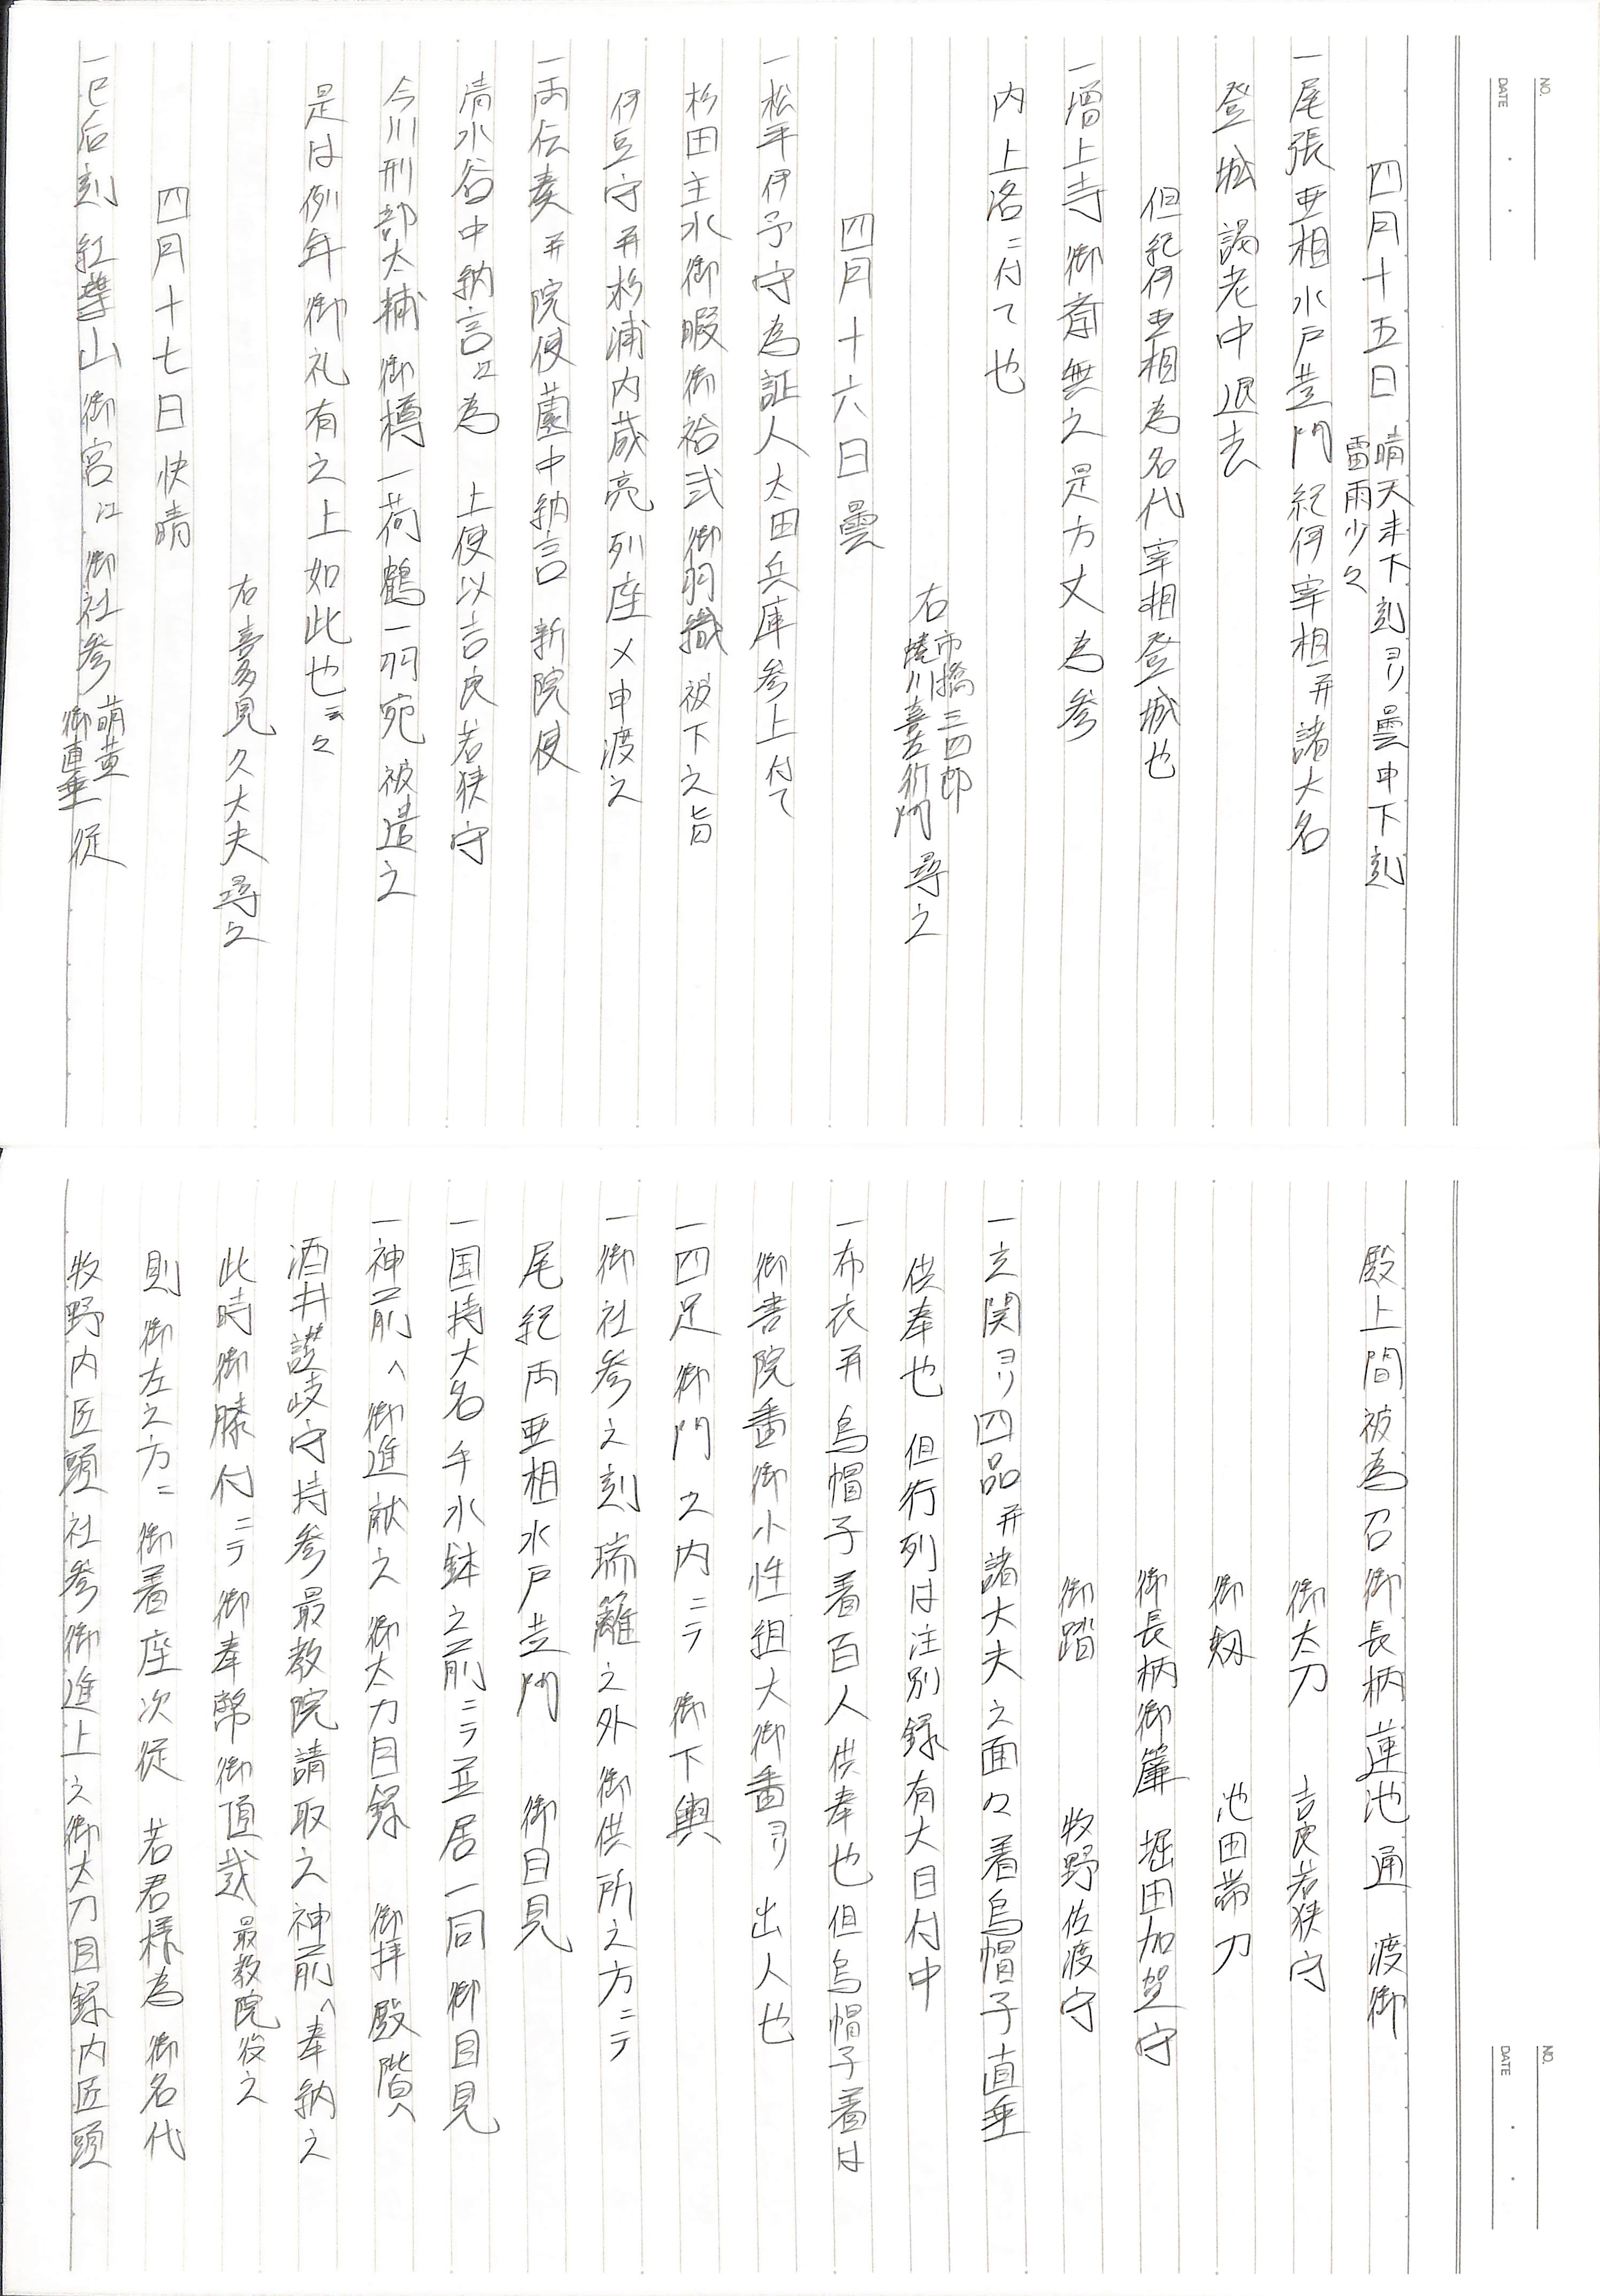 NO.
DATE
四月十五日 晴天未下刻ヨリ曇申下刻
雷雨少々
一尾張亜相水戸黄門紀伊宰相并諸大名
登城 謁老中退去
但紀伊亜相為名代宰相登城也
一増上寺御斎無之是方丈為参
内上洛ニ付て也
右 市橋三四郎
蜷川喜左衛門 尋之
四月十六日曇
一松平伊予守為証人太田兵庫参上付て
杉田主水御暇御袷弐御羽織被下之旨
伊豆守并杉浦内蔵亮列座〆申渡之
一両伝奏并院使薗中納言新院使
清水谷中納言江為 上使以吉良若狭守
今川刑部太輔御樽一荷鶴一羽宛被遣之
是は例年御礼有之上如此也云々
右喜多見久大夫尋之
四月十七日快晴
一巳后刻 紅葉山御宮江御社参 萌黄
御直垂 従
NO.
DATE
殿上間被為召御長柄蓮池通 渡御
御太刀 吉良若狭守
御剱 池田帯刀
御長柄御簾 堀田加賀守
御踏 牧野佐渡守
一玄関ヨリ四品并諸大夫之面々着烏帽子直垂
供奉也 但行列は注別録有大目付中
一布衣并烏帽子着百人供奉也但烏帽子着は
御書院番御小性組大御番ヨリ出人也
一四足御門之内ニテ 御下輿
一御社参之刻瑞籬之外御供所之方ニテ
尾紀両亜相水戸黄門 御目見
一国持大名手水鉢之前ニテ並居一同御目見
一神前へ御進献之御太刀目録 御拝殿階
酒井讃岐守持参最教院請取之神前へ奉納之
此時御膝付ニテ御奉幣御頂戴 最教院役之
則御左之方ニ御着座次従 若君様為御名代
牧野内匠頭社参御進上之御太刀目録内匠頭